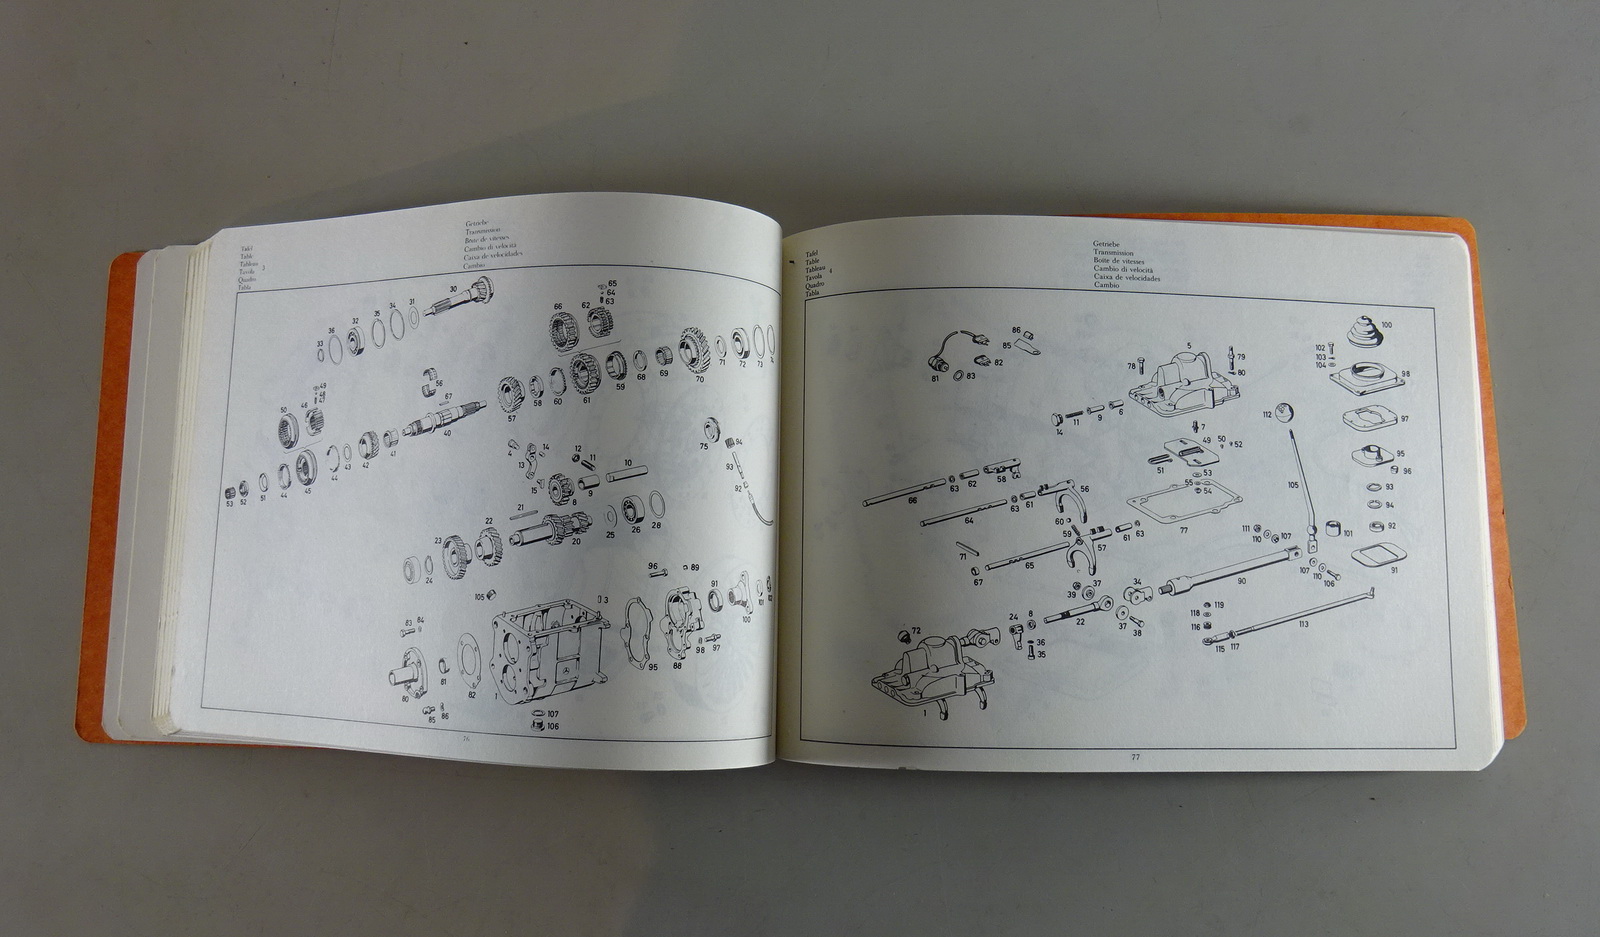 Tafel
Table
Tableau
Tavola
Quadro
Tabla
3
Getriebe
Transmission
Boîte de vitesses
Cambio di velocità
Caixa de velocidades
Cambio
33
36
32
35
34
31
30
66
62
65
64
63
71
72
73
70
69
68
59
61
60
58
57
56
67
40
49
48
47
46
50
41
42
43
44
45
44
51
52
53
75
94
93
92
4
14
13
15
12
11
10
9
8
21
20
22
23
24
25
26
28
96
89
91
100
3
105
83
84
80
81
82
85
86
1
107
106
95
88
98
97
76
Tafel
Table
Tableau
Tavola
Quadro
Tabla
4
Getriebe
Transmission
Boîte de vitesses
Cambio di velocità
Caixa de velocidades
Cambio
81
83
82
86
85
78
5
79
80
14
11
9
6
7
49
50
52
51
53
55
54
77
102
103
104
100
98
97
95
96
93
94
92
91
112
105
101
111
110
107
107
110
106
66
63
62
58
64
63
61
56
60
59
57
61
63
71
67
65
39
37
34
22
37
38
90
24
8
36
35
72
1
119
118
116
115
117
113
77